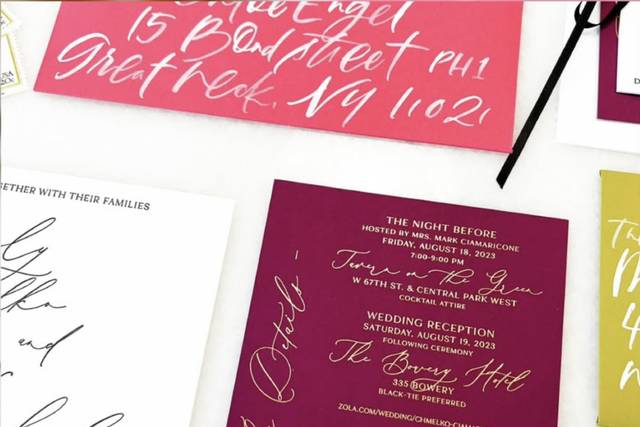 Engel
15 Bond street PH1
Great neck, NY 11021
TOGETHER WITH THEIR FAMILIES
and
THE NIGHT BEFORE
HOSTED BY MRS. MARK CIAMARICONE
FRIDAY, AUGUST 18, 2023
7:00-9:00 PM
Tavern on the Green
W 67TH ST. & CENTRAL PARK WEST
COCKTAIL ATTIRE
WEDDING RECEPTION
SATURDAY, AUGUST 19, 2023
FOLLOWING CEREMONY
The Bowery Hotel
335 BOWERY
BLACK-TIE PREFERRED
ZOLA.COM/WEDDING/CHMELKO-CIAM
Details